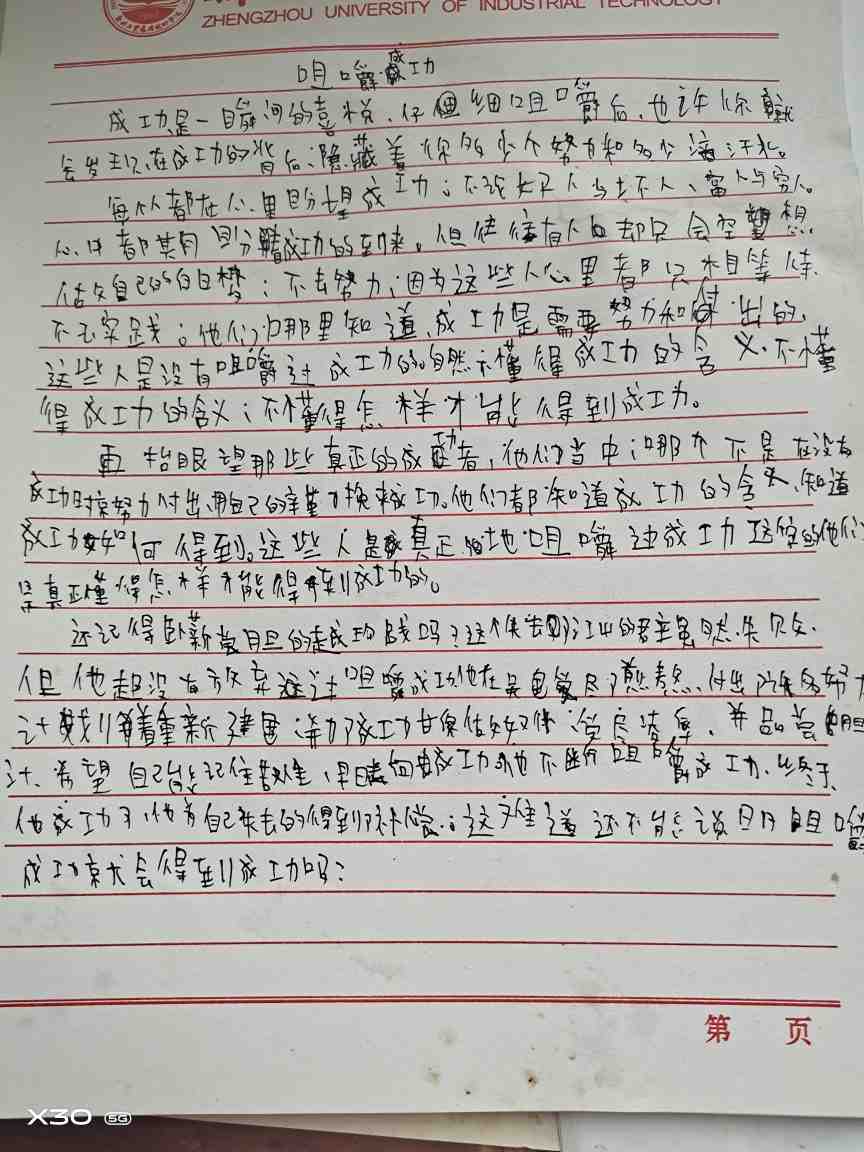 ZHENGZHOU UNIVERSITY OF INDUSTRIAL TECHNOLOGY
咀嚼成功
成功是一瞬间的喜悦、仔细咀嚼后、也许你就
会发现、在成功的背后;隐藏着你多少个努力和多少滴汗水。
每个人都在心里盼望成功;不论好人与坏人、富人与穷人。
心中都其有盼成功的到来。但往往有人却只会空想
做女自己的白日梦;不去努力;因为这些人心里都只相等待、
不去实践;他们哪里知道、成功是需要努力和付出的、
这些人是没有咀嚼过成功的。自然不懂得成功的含义.不懂
得成功的含义;不懂得怎样才能得到成功。
再抬眼望那些真正的成功者,他们当中;哪个不是在没有
成功时努力付出、用自己的辛勤换来成功。他们都知道成功的含义、知道
成功如何得到。这些人是真正地咀嚼过成功这的他们
是真正懂得怎样才能得到成功的。
还记得卧薪尝胆的越吗?这个失去江山的君主虽然失败.
但他没有放弃过咀嚼成功他在吴国受尽了煎熬.付出许多努力
计划着重新建国
希望自己能记住咀嚼成功.终于、
他成功了,他将自己失去的得到补偿.;这难道还不能说明咀嚼
成功就会得到成功吗?
第 页
X30 5G